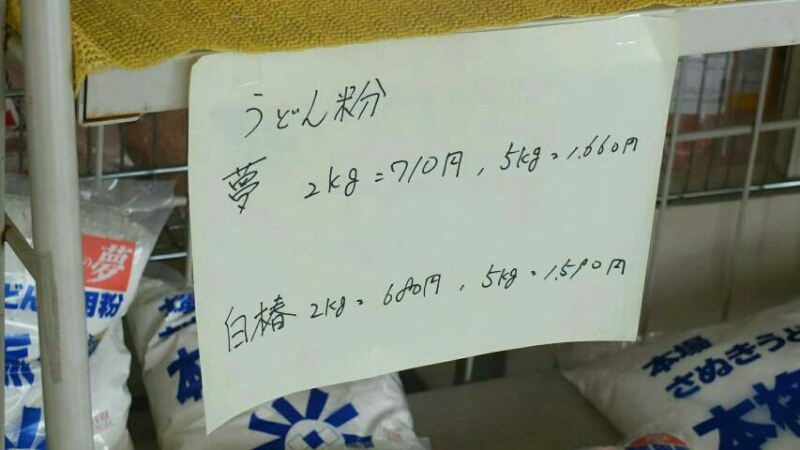 うどん粉
夢 2kg=710円, 5kg=1.660円
白椿 2kg= 680円, 5kg=1.590円
の夢
どん用粉
本場
さぬきうど
本格